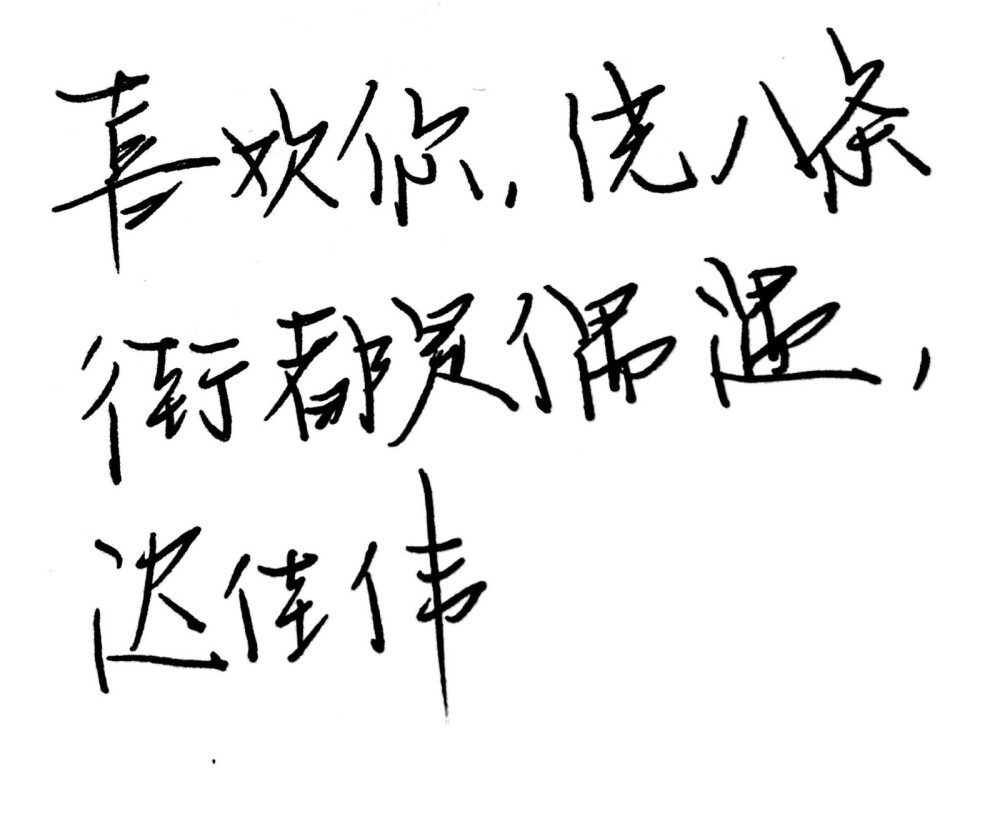 喜欢你，绕八条
街都是偶遇，
迟佳伟